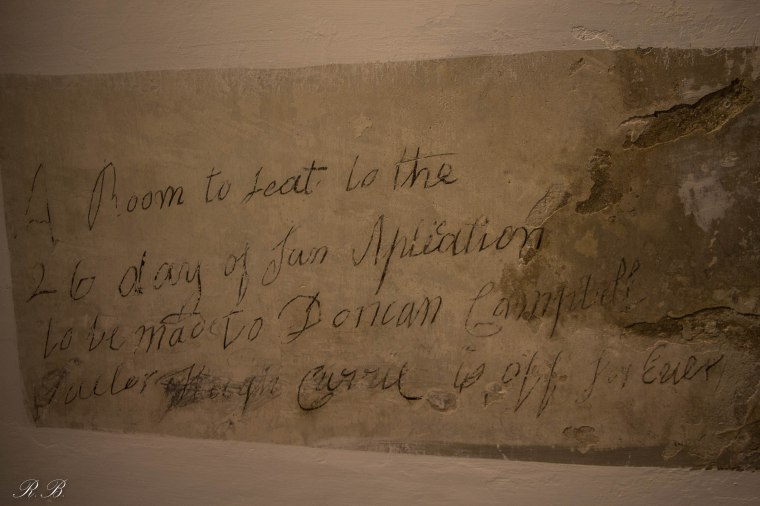 A Room to Leat to the
26 day of Jun Aplication
to be made to Doncan Campbell
Hugh Currie is off for Ever
R. B.